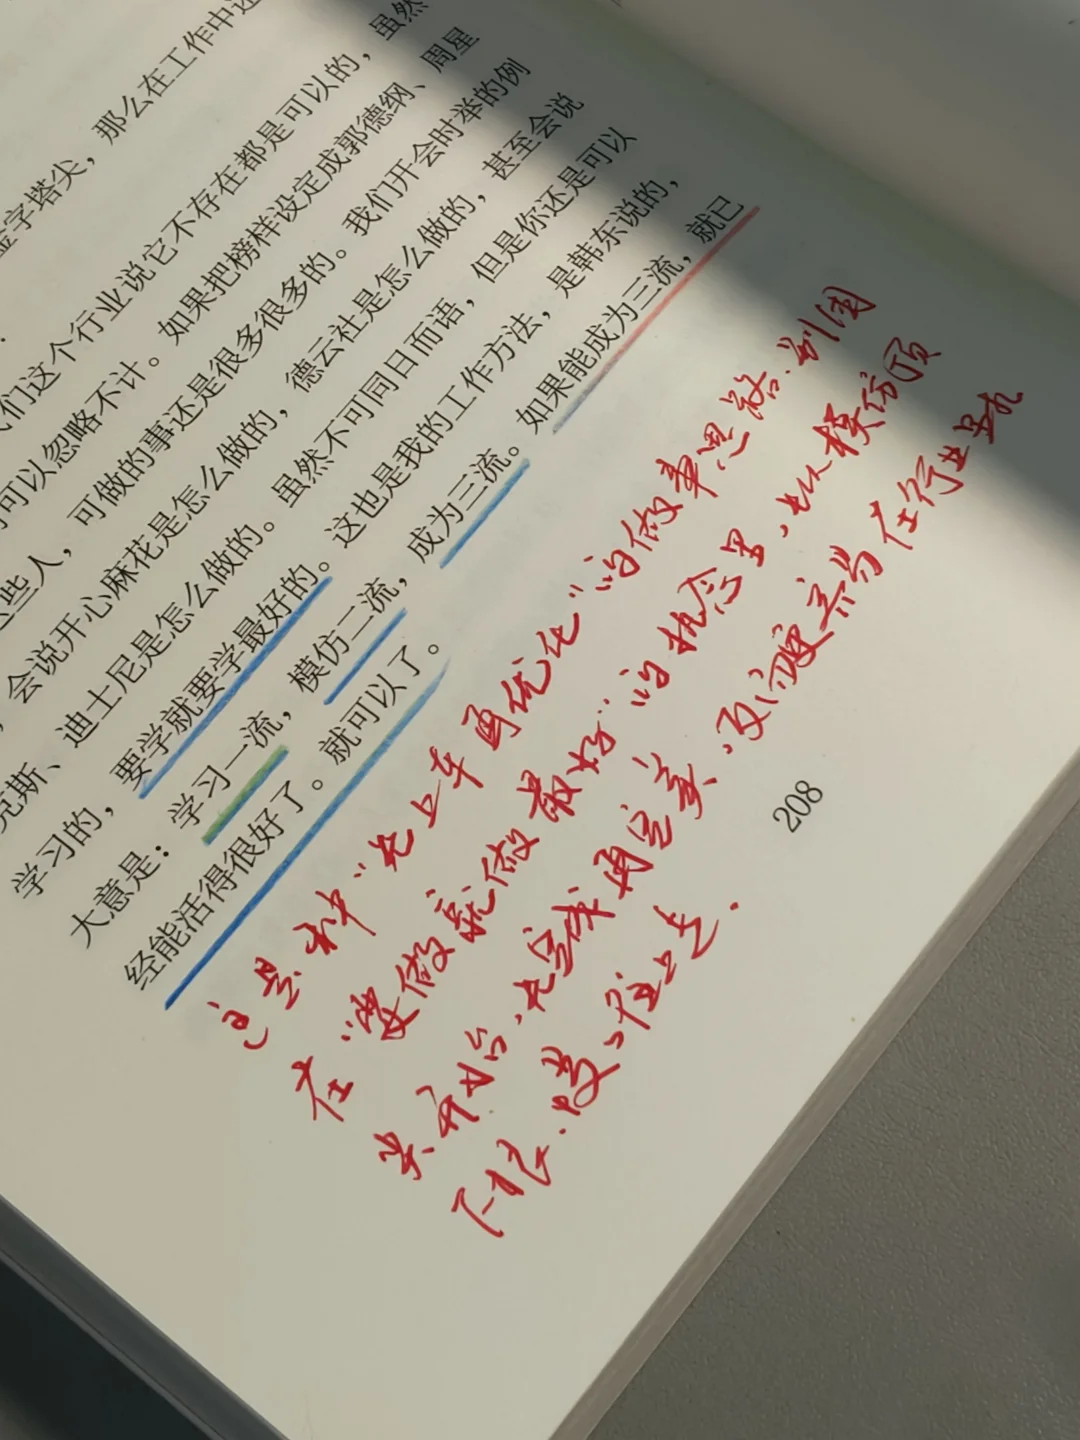 金字塔尖，那么在工作中还
们这个行业说它不存在都是可以的，虽然
可以忽略不计。如果把榜样设定成郭德纲、周星
这些人，可做的事还是很多很多的。我们开会时举的例
，会说开心麻花是怎么做的，德云社是怎么做的，甚至会说
克斯、迪士尼是怎么做的。虽然不可同日而语，但是你还是可以
学习的，要学就要学最好的。这也是我的工作方法，是韩东说的，
大意是：学习一流，模仿二流，成为三流。如果能成为三流，就已
经能活得很好了。就可以了。
这是种“先上车再优化”的做事思路.别困
在“要做就做最好”的执念里，先从模仿顶
尖开始，先完成再完美，反而更容易在行业里扎
下根.慢慢往上走.
208